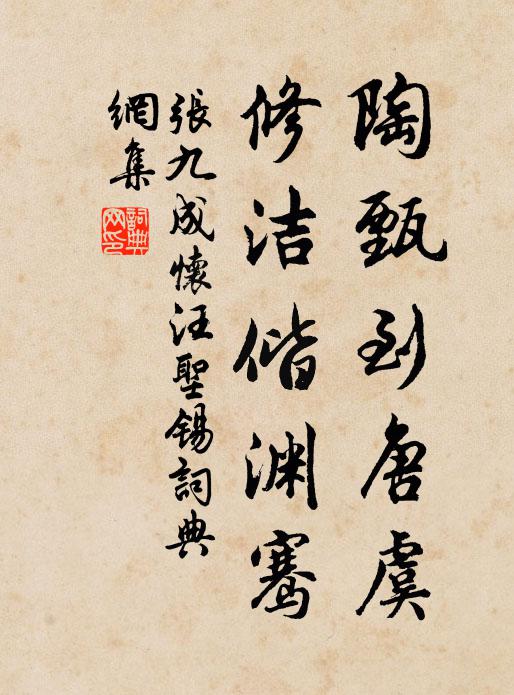 陶甄到唐虞
修洁偕渊骞
張九成懷汪聖錫詞典
網集
詞典網印